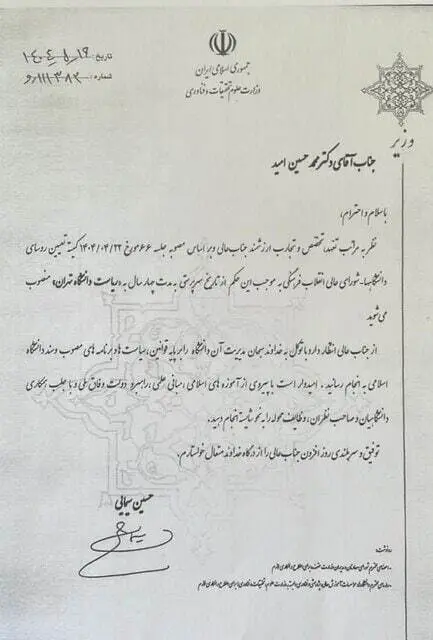 جمهوری اسلامی ایران
وزارت علوم تحقیقات و فناوری
تاریخ: ۱۴۰۴/۵/۱۹
شماره: ۱۱۱۳۸۲/و
وزیر
جناب آقای دکتر محمد حسین امید
با سلام و احترام،
نظر به مراتب تعهد، تخصص و تجارب ارزشمند جنابعالی و بر اساس مصوبه جلسه ۶۶ مورخ ۱۴۰۴/۰۴/۲۲ کمیته تعیین روسای
دانشگاهها- شورای عالی انقلاب فرهنگی به موجب این حکم از تاریخ سرپرستی به مدت چهار سال به «ریاست دانشگاه تهران» منصوب
می شوید
از جناب عالی انتظار دارد با توکل به خداوند سبحان مدیریت آن دانشگاه را بر پایه قوانین، سیاست ها و برنامه های مصوب و سند دانشگاه
اسلامی به انجام رسانید. امیدوار است با پیروی از آموزه های اسلامی، مبانی علمی، راهبرد دولت وفاق ملی و با جلب همکاری
دانشگاهیان و صاحب نظران، وظایف محوله را به نحو شایسته انجام دهید.
توفیق و سربلندی روز افزون جناب عالی را از درگاه خداوند متعال خواستارم.
حسین سیمایی
رونوشت: